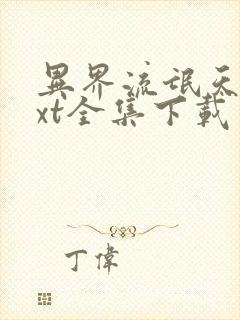 異界流氓天
xt全集下載
丁偉